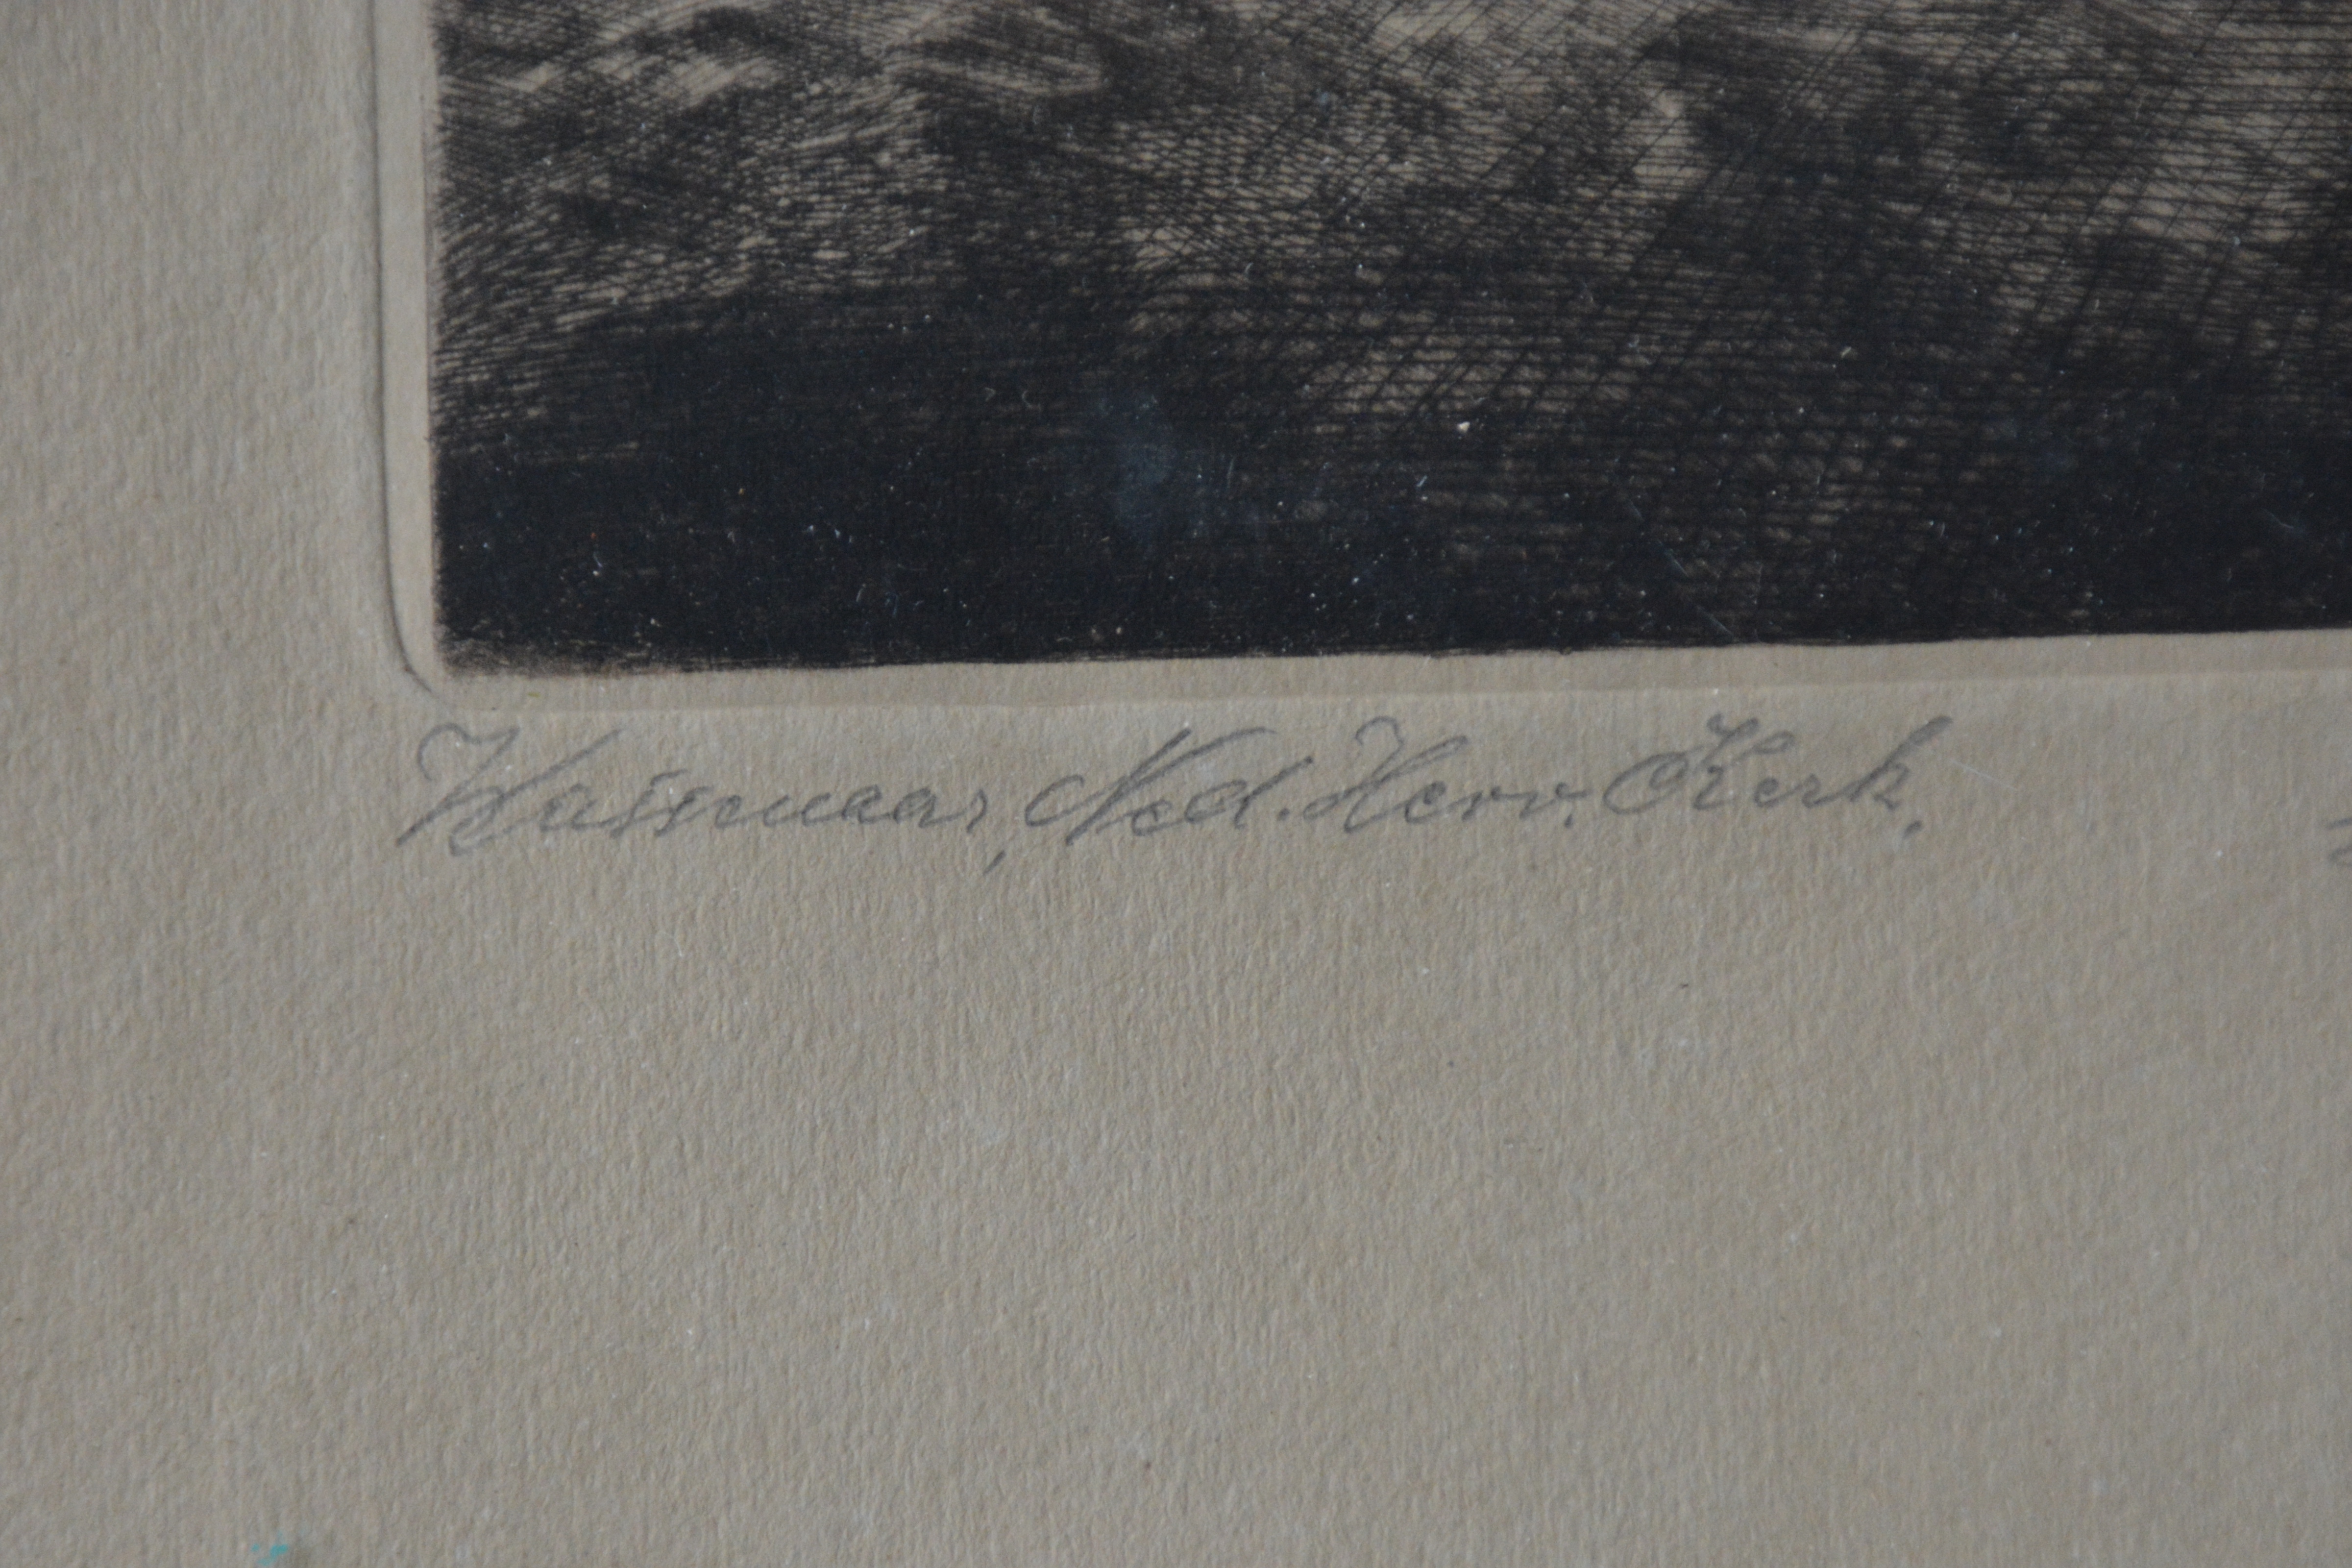 Wassenaar, Ned. Herv. Kerk.